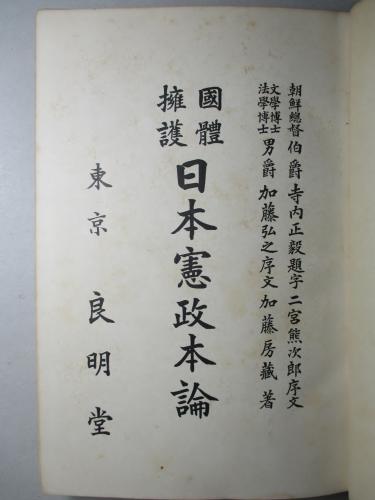 朝鮮總督伯爵寺内正毅題字二宮熊次郎序文
文學博士法學博士男爵加藤弘之序文加藤房藏著
國體擁護
日本憲政本論
東京良明堂